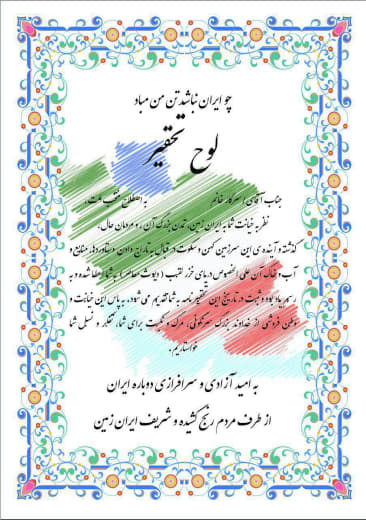 چو ایران نباشد تن من مباد
لوح تحقیر
جناب آقای / سرکار خانم به اصطلاح منتخب ملت،
نظر به خیانت شما به ایران زمین، تمدن بزرگ آن، و مردمان حال،
گذشته و آینده ی این سرزمین کهن و سکوت در قبال به تاراج دادن دستاوردها، منابع و
آب و خاک آن علی الخصوص دریای خزر لقب (دیوث معاصر) به شما اعطا شده و به
رسم یادبود و ثبت در تاریخ این تحقیر نامه به شما تقدیم می شود. به پاس این خیانت و
وطن فروشی از خداوند بزرگ سرنگونی، مرگ و نکبت برای شما، تفکر و نسل شما
خواستاریم.
به امید آزادی و سرافرازی دوباره ایران
از طرف مردم رنج کشیده و شریف ایران زمین